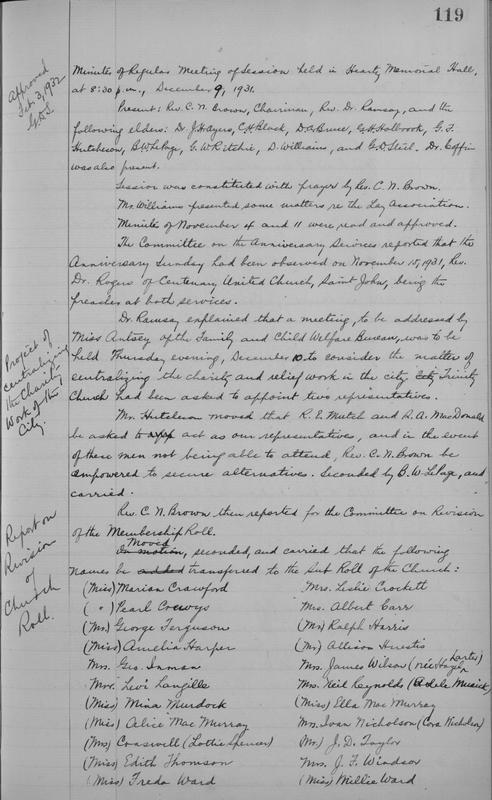 119
Approved
Feb. 3, 1932
G.D.S.
Minutes of Regular Meeting of Session held in Heartz Memorial Hall,
at 8:30 p.m., December 9, 1931.
Present: Rev. C. N. Brown, Chairman, Rev. Dr. Ramsay, and the
following elders: Dr. J. H. Ayers, C. H. Black, D. A. Bruce, G. H. Holbrook, G. F.
Hutcheson, B. W. LePage, G. W. Ritchie, D. Williams, and G. D. Steel. Dr. Coffin
was also present.
Session was constituted with prayer by Rev. C. N. Brown.
Mr. Williams presented some matters re the Lay Association.
Minutes of November 4 and 11 were read and approved.
The Committee on the Anniversary Services reported that the
Anniversary Sunday had been observed on November 15, 1931, Rev.
Dr. Rogers of Centenary United Church, Saint John, being the
preacher at both services.
Project of
centralizing
the Charity
Work of the
City.
Dr. Ramsay explained that a meeting, to be addressed by
Miss Antsey of the Family and Child Welfare Bureau, was to be
held Thursday evening, December 10 to consider the matter of
centralizing the charity and relief work in the city. City Trinity
Church had been asked to appoint two representatives.
Mr. Hutcheson moved that R. E. Mutch and A. A. MacDonald
be asked to app act as our representatives, and in the event
of these men not being able to attend, Rev. C. N. Brown be
empowered to secure alternatives. Seconded by B. W. LePage, and
carried.
Report on
Revision
of
Church
Roll.
Rev. C. N. Brown then reported for the Committee on Revision
of the Membership Roll.
Moved
On motion, seconded, and carried that the following
names be added transferred to the Sub Roll of the Church:
(Miss) Marian Crawford Mrs. Leslie Crockett
( " ) Pearl Mrs. Albert Carr
(Mr.) George Ferguson (Mr.) Ralph Harris
(Miss) Amelia Harper (Mr.) Allison Huestis
Mrs. Geo. Inman Mrs. James Wilson (née Hazen
Mrs. Levi Langille Mrs. Neil Reynolds (Adele Musick)
(Miss) Mina Murdock (Miss) Ella Mac Murray
(Miss) Alice Mac Murray Mrs. Ivan Nicholson (Cora Nicholson)
(Mrs) Conswell (Lottie Spencer) (Mr.) J. D. Taylor
(Miss) Edith Thomson Mrs. J. F. Windsor
(Miss) Freda Ward (Miss) Millie Ward